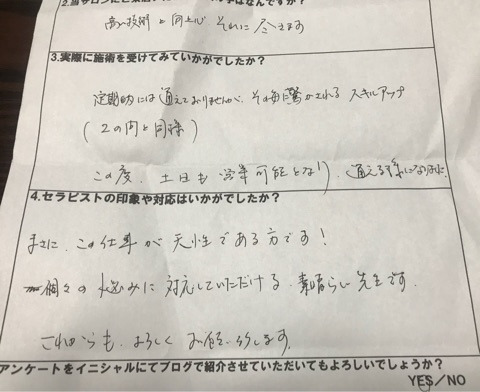 高い技術と向上心 それに尽きます
3.実際に施術を受けてみていかがでしたか？
定期的には通えておりませんが、その毎に驚かされる スキルアップ
(2の内と同様)
この度、土日も営業可能となり、通える様になりました
4.セラピストの印象や対応はいかがでしたか？
まさに、この仕事が天性である方です！
個々の悩みに対応していただける、素晴らしい先生です。
これからも、よろしくお願い致します。
アンケートをイニシャルにてブログで紹介させていただいてもよろしいでしょうか？
YES／NO